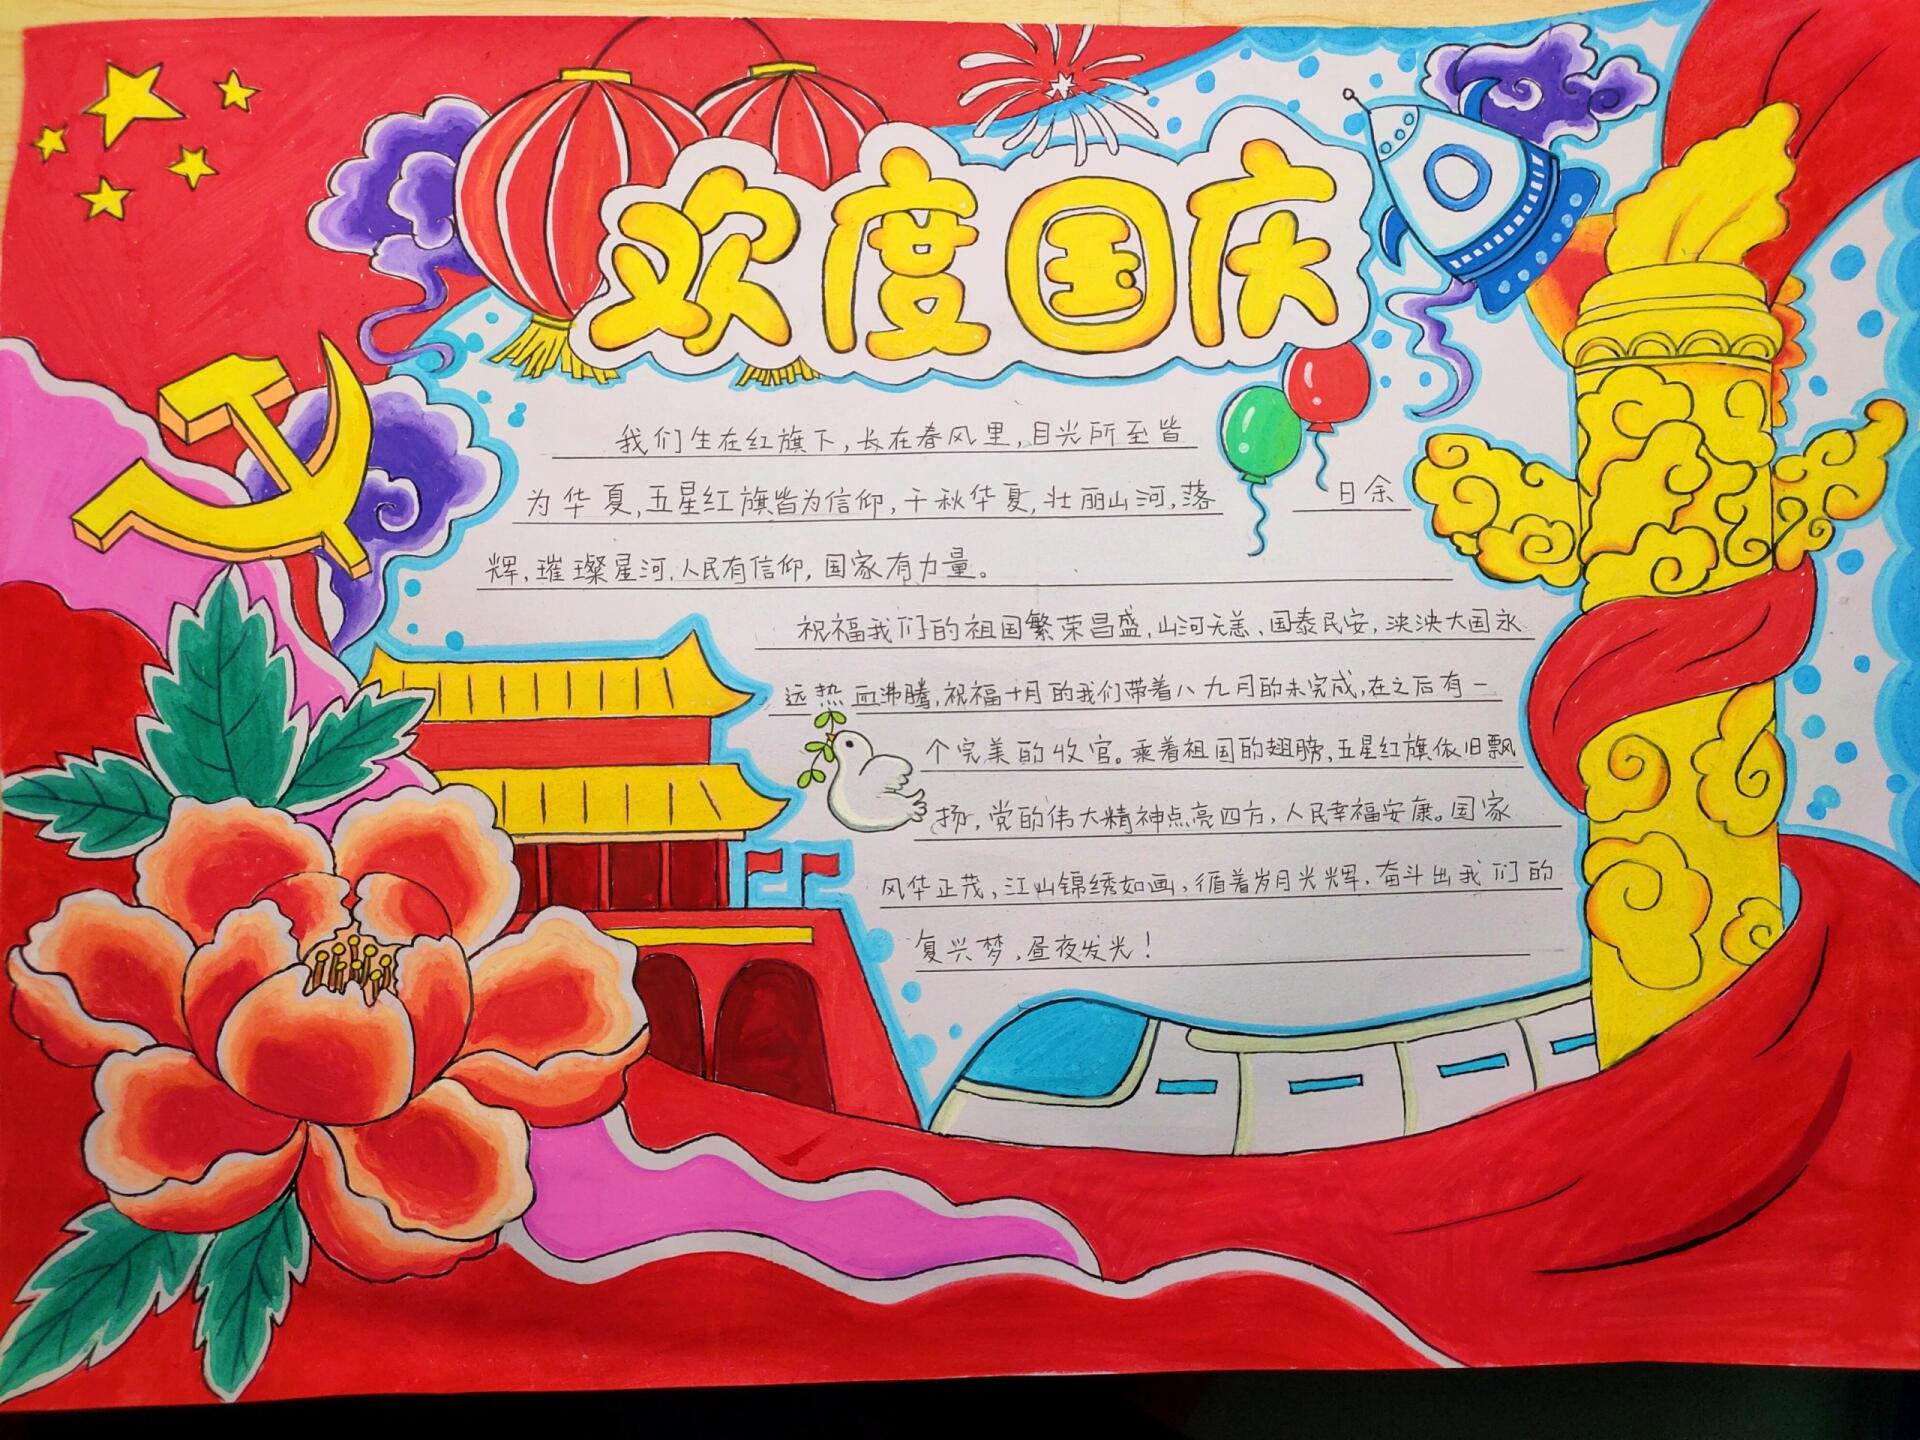 欢度国庆
我们生在红旗下,长在春风里,目光所至皆
为华夏,五星红旗皆为信仰,千秋华夏,壮丽山河,落 日余
辉,璀璨星河,人民有信仰,国家有力量。
祝福我们的祖国繁荣昌盛,山河无恙、国泰民安,泱泱大国永
远热血沸腾,祝福十月的我们带着八九月的未完成,在之后有一
个完美的收官。乘着祖国的翅膀,五星红旗依旧飘
扬,党的伟大精神点亮四方,人民幸福安康。国家
风华正茂,江山锦绣如画,循着岁月光辉,奋斗出我们的
复兴梦,昼夜发光!